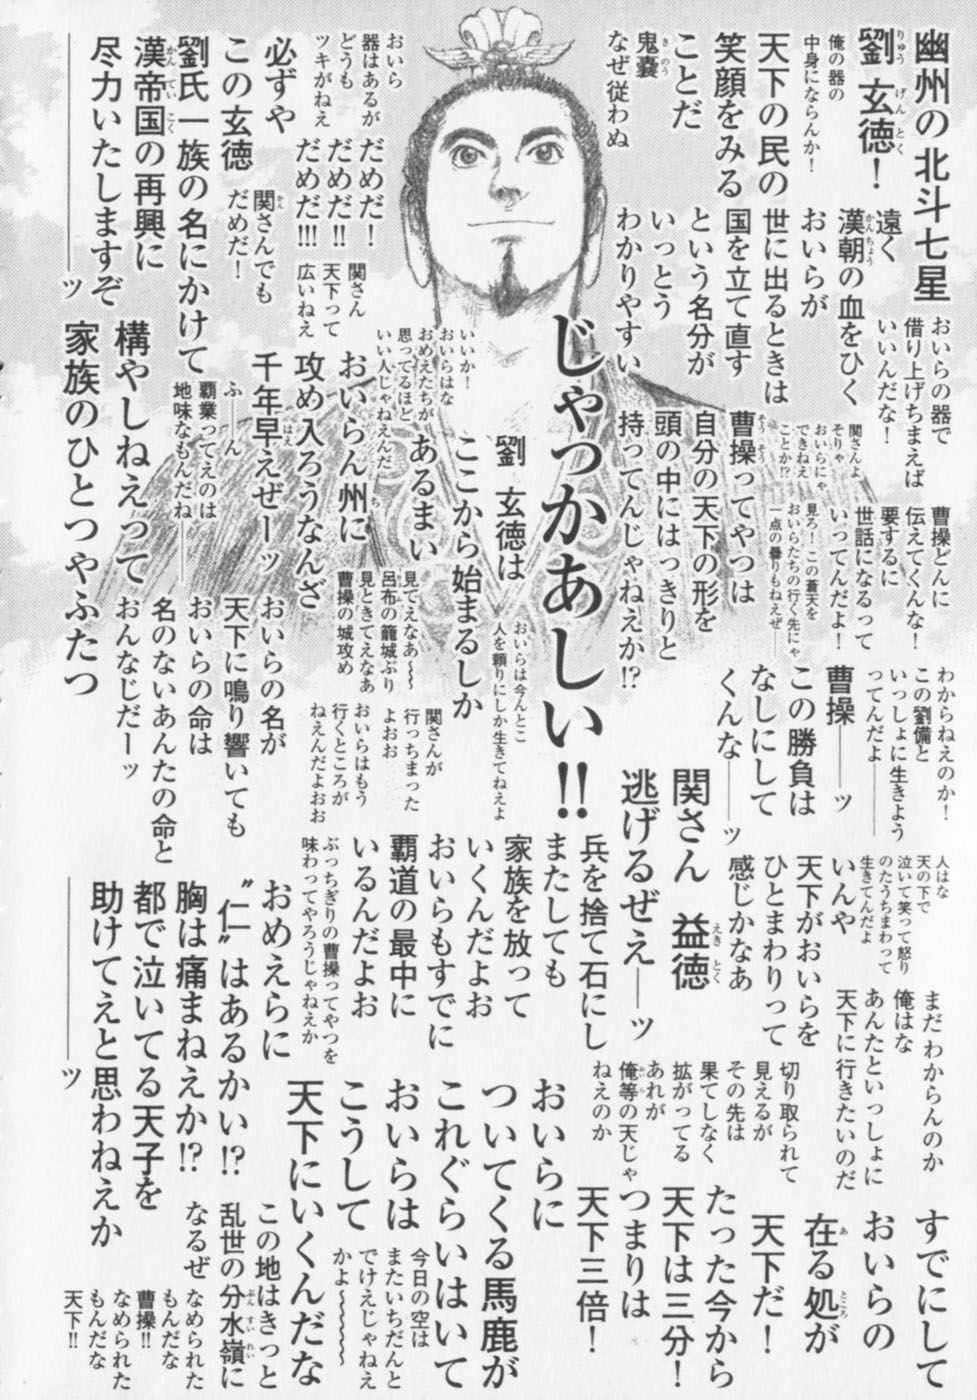 幽州の北斗七星
劉玄徳!
俺の器の
中身にならんか!
天下の民の
笑顔をみる
ことだ
鬼嚢
なぜ従わぬ
おいら
器はあるが
どうも
ツキがねえ
必ずや
この玄徳
劉氏一族の名にかけて
漢帝国の再興に
尽力いたしますぞ
――――ッ
だめだ!
だめだ!!
だめだ!!!
関さんでも
だめだ!
関さん
天下って
広いねえ
遠く
漢朝の血をひく
おいらが
世に出るときは
国を立て直す
という名分が
いっとう
わかりやすい
おいらの器で
借り上げちまえば
いいんだな!
じゃっかあしい!!
いいか!
おいらはな
おめえたちが
思ってるほど
いい人じゃねえんだ
おいらん州に
攻め入ろうなんざ
千年早えぜーッ
ふ――ん
覇業ってえのは
地味なもんだね――
構やしねえって
家族のひとつやふたつ
関さんよ
そりゃ
おいらにゃ
できねえ
ことか!?
曹操ってやつは
自分の天下の形を
頭の中にはっきりと
持ってんじゃねえか!?
劉玄徳は
ここから始まるしか
あるまい
曹操どんに
伝えてくんな!
要するに
世話になるって
いってんだよ!
見ろ!この蒼天を
おいらたちの行く先にゃ
一点の曇りもねえぜ――
見てえなあ〜〜
呂布の籠城ぶり
見ときてえなあ
曹操の城攻め
おいらの名が
天下に鳴り響いても
おいらの命は
名のないあんたの命と
おんなじだーッ
おいらは今んとこ
人を頼りにしか生きてねえよ
わからねえのか!
この劉備と
いっしょに生きよう
ってんだよ――――
曹操――ッ
この勝負は
なしにして
くんな――ッ
関さんが
行っちまった
よおお
おいらはもう
行くところが
ねえんだよおお
関さん 益徳
逃げるぜえ――ッ
人はな
天の下で
泣いて笑って怒り
のたうちまわって
生きてんだよ
いんや
天下がおいらを
ひとまわりって
感じかなあ
兵を捨て石にし
またしても
家族を放って
いくんだよお
おいらもすでに
覇道の最中に
いるんだよお
ぶっちぎりの曹操ってやつを
味わってやろうじゃねえか
おめえらに
“仁”はあるかい!?
胸は痛まねえか!?
都で泣いてる天子を
助けてえと思わねえか
――――ッ
まだわからんのか
俺はな
あんたといっしょに
天下に行きたいのだ
切り取られて
見えるが
その先は
果てしなく
拡がってる
あれが
俺等の天じゃ
ねえのか
おいらに
ついてくる馬鹿が
これぐらいはいて
おいらは
こうして
天下にいくんだな
すでにして
おいらの
在る処が
天下だ!
たった今から
天下は三分!
つまりは
天下三倍!
今日の空は
またいちだんと
でけえじゃねえ
かよ〜〜〜〜
この地はきっと
乱世の分水嶺に
なるぜ
なめられた
もんだな
曹操!!
なめられた
もんだな
天下!!